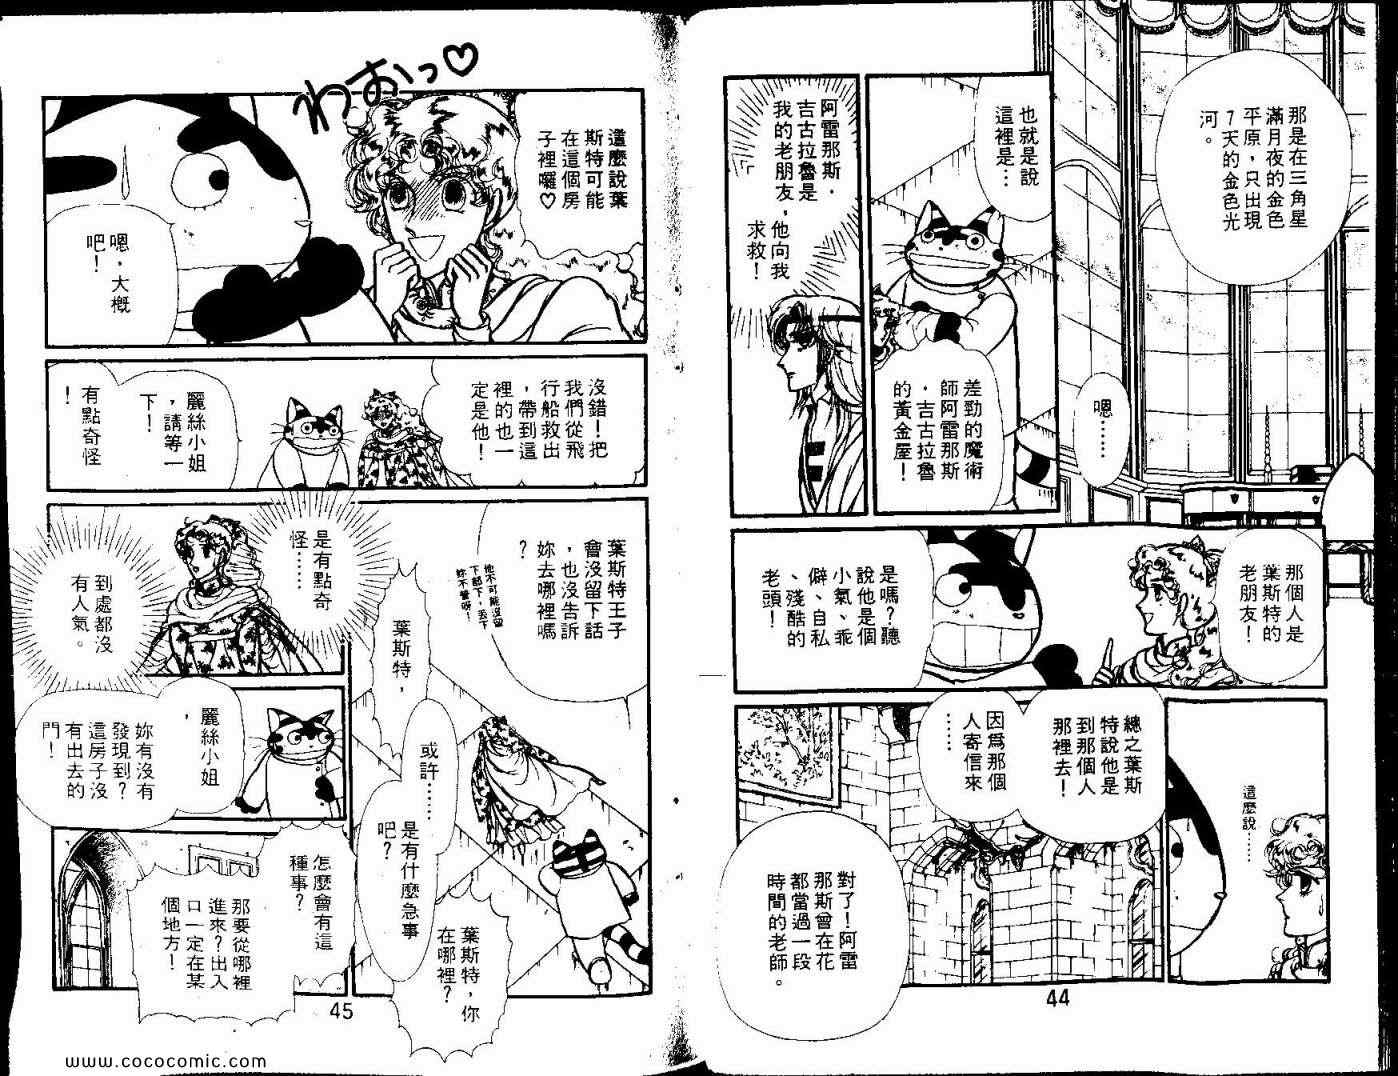 那是在三角星
滿月夜的金色
平原，只出現
7天的金色光
河。
也就是說
這裡是…
嗯……
差勁的魔術
師阿雷那斯
．吉古拉魯
的黃金屋！
阿雷那斯．
吉古拉魯是
我的老朋友，
他向我
求救！
那個人是
葉斯特的
老朋友！
是嗎？聽
說他是個
小氣、乖
僻、自私
、殘酷的
老頭！
這麼說……
總之葉斯
特說他是
到那個人
那裡去！
因為那個
人寄信來
……
對了！阿雷
那斯曾在花
都當過一段
時間的老師。
44
わおっ♡
這麼說葉
斯特可能
在這個房
子裡囉♡
嗯，大概
吧！
沒錯！把
我們從飛
行船救出
，帶到這
裡的也一
定是他！
麗絲小姐
，請等一
下！
有點奇怪
！
葉斯特王子
會沒留下話
，也沒告訴
妳去哪裡嗎
？
他不可能沒留
下部下，丟下
妳不管呀！
葉斯特，
或許……
是有什麼急事
吧？
葉斯特，你
在哪裡？
是有點奇
怪……
到處都沒
有人氣。
麗絲小姐
，
妳有沒有
發現到？
這房子沒
有出去的
門！
怎麼會有這
種事？
那要從哪裡
進來？出入
口一定在某
個地方！
45
www.cococomic.com